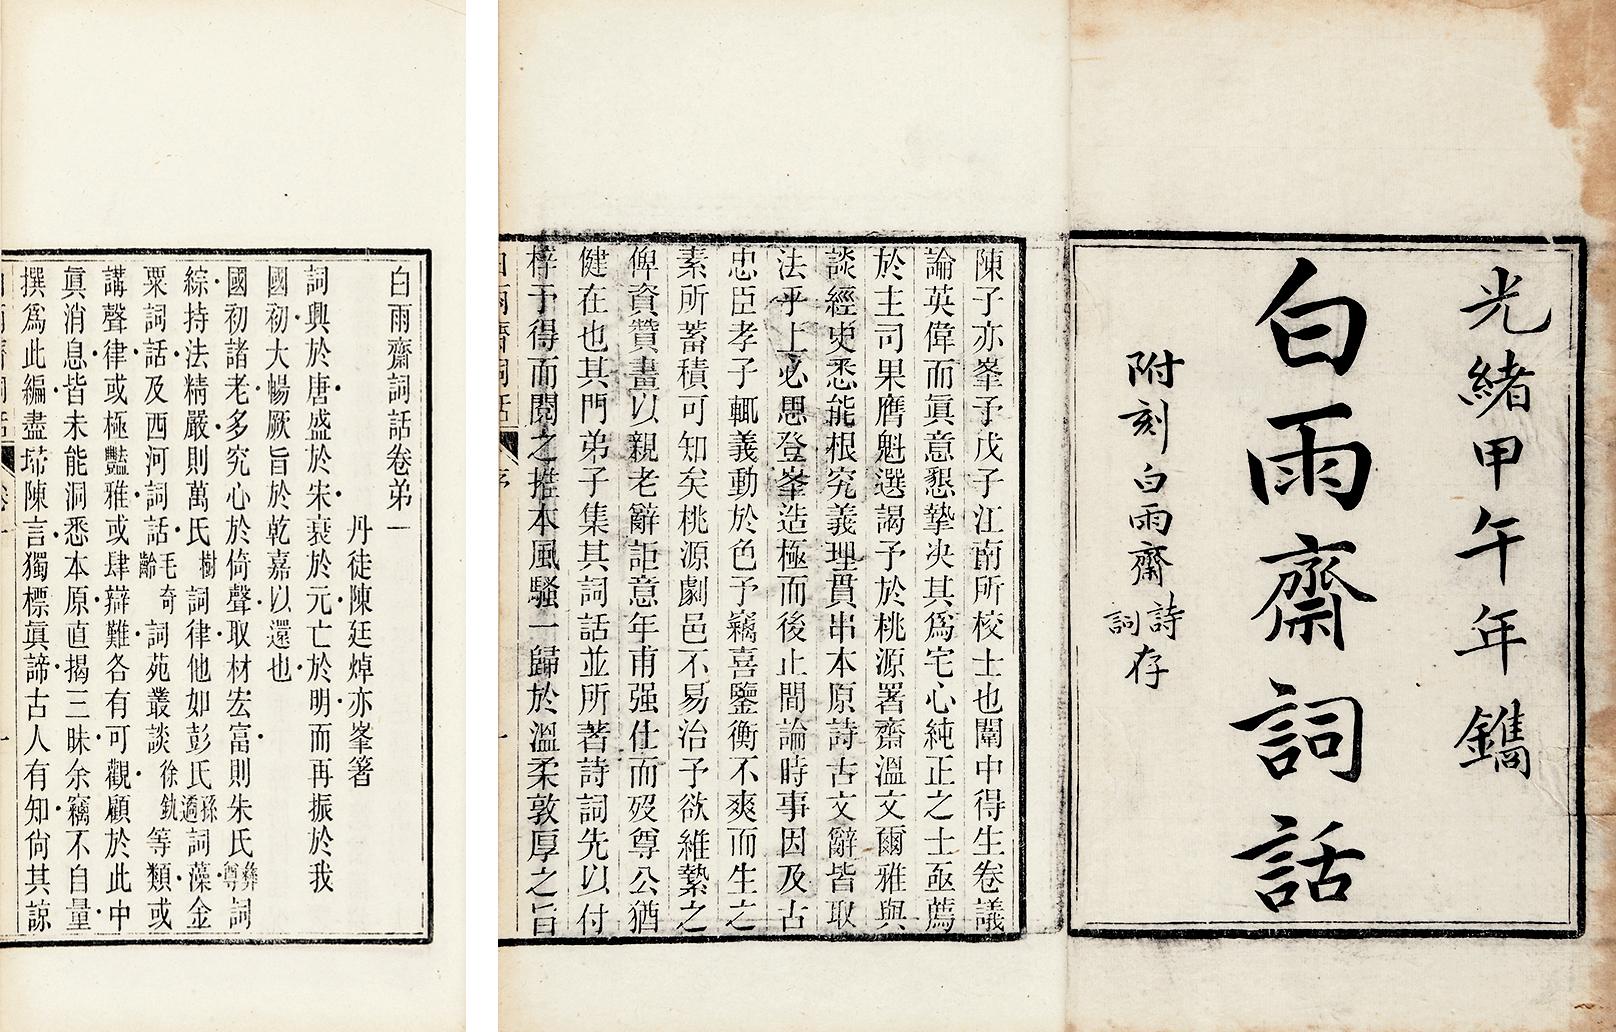 光緒甲午年鐫
白雨齋詞話
附刻白雨齋詩詞存
陳子亦峯予戊子江南所校士也闈中得生卷議
論英偉而眞意懇摯决其爲宅心純正之士亟薦
於主司果膺魁選謁予於桃源署齋溫文爾雅與
談經史悉能根究義理貫串本原詩古文辭皆取
法乎上必思登峯造極而後止間論時事因及古
忠臣孝子輒義動於色予竊喜鑒衡不爽而生之
素所蓄積可知矣桃源劇邑不易治予欲維縶之
俾資贊畫以親老辭詎意年甫强仕而歿尊公猶
健在也其門弟子集其詞話並所著詩詞先以付
梓予得而閱之推本風騷一歸於溫柔敦厚之旨
白雨齋詞話 序 一
白雨齋詞話卷弟一
丹徒陳廷焯亦峯箸
詞興於唐盛於宋衰於元亡於明而再振於我
國初大暢厥旨於乾嘉以還也
國初諸老多究心於倚聲取材宏富則朱氏彝尊詞
綜持法精嚴則萬氏樹詞律他如彭氏孫遹詞藻金
粟詞話及西河詞話毛奇齡詞苑叢談徐釚等類或
講聲律或極豔雅或肆辯難各有可觀顧於此中
眞消息皆未能洞悉本原直揭三昧余竊不自量
撰爲此編盡埽陳言獨標眞諦古人有知尙其諒
白雨齋詞話 卷一 一